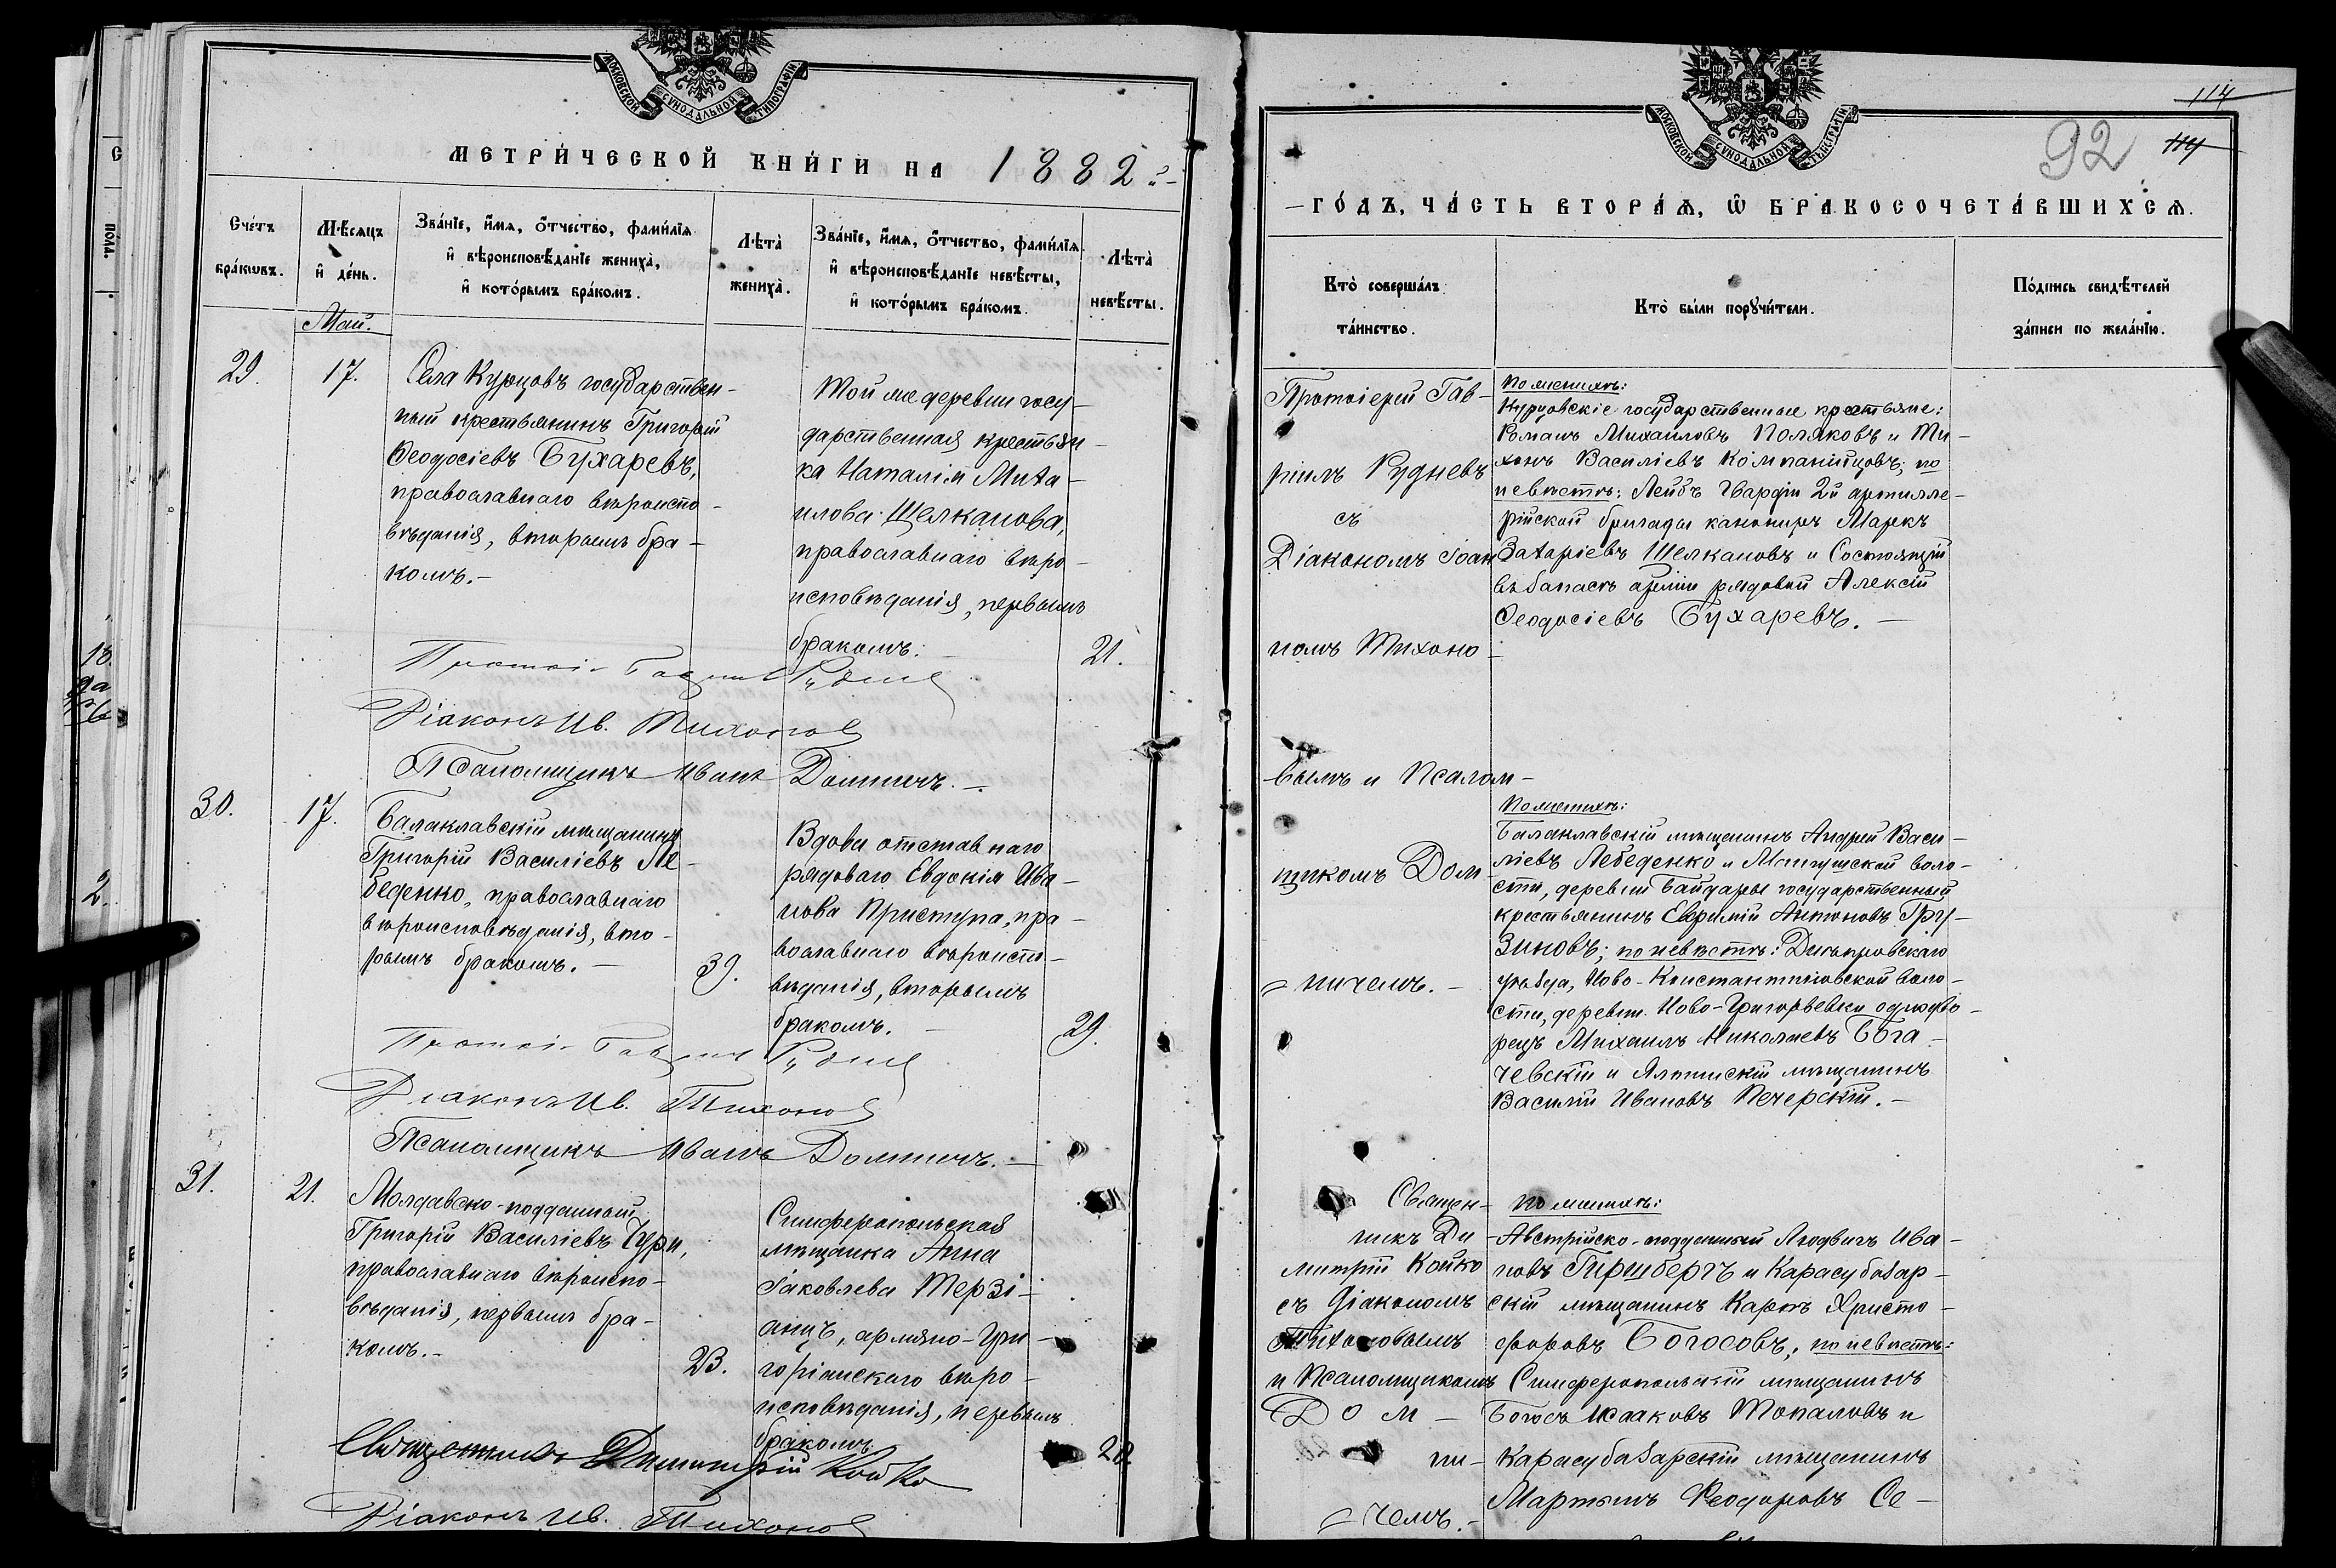 МОСКОВСКОЙ СѴНОДАЛЬНОЙ ТИПОГРАФІИ
МЕТРИ́ЧЕСКОЙ КНИ́ГИ НА 1882й
Сче́тъ бра́кѡвъ.
Мѣ́сяцъ и де́нь.
Зва́нїе, и́мя, ѻ́тчество, фами́лїя
и вѣроисповѣ́данїе жениха̀,
и кото́рымъ бра́комъ.
Лѣта̀ жениха̀.
Зва́нїе, и́мя, ѻ́тчество, фами́лїя
и вѣроисповѣ́данїе невѣ́сты,
и кото́рымъ бра́комъ.
Лѣта̀ невѣ́сты.
Май.
29.
17.
Села Курцовъ государствен-
ный крестьянинъ Григорій
Ѳеодосіевъ Бухаревъ,
православнаго вѣроиспо-
вѣданія, вторымъ бра-
комъ.-
Той же деревни госу-
дарственная крестьян-
ка Наталія Миха-
илова Щелканова,
православнаго вѣро-
исповѣданія, первымъ
бракомъ.-
21.
Діаконъ Ив. Тихонов
Псаломщикъ Иванъ Домничъ.-
30.
17.
Балаклавскій мѣщанинъ
Григорій Василіевъ Ле-
беденко, православнаго
вѣроисповѣданія, вто-
рымъ бракомъ.-
39.
Вдова отставнаго
рядоваго Евдокія Ива-
нова Приступа, пра-
вославнаго вѣроиспо-
вѣданія, вторымъ
бракомъ.-
29.
Діаконъ Ив. Тихонов
Псаломщикъ Иванъ Домничъ.-
31.
21.
Молдавско-подданный
Григорій Василіевъ Чури,
православнаго вѣроиспо-
вѣданія, первымъ бра-
комъ.-
23.
Симферопольская
мѣщанка Анна
Іаковлева Терзі-
анцъ, армяно-гри-
горіанскаго вѣро-
исповѣданія, первымъ
бракомъ.
28.
Священникъ Димитрій Койко
Діаконъ Ив. Тихонов
МОСКОВСКОЙ СѴНОДАЛЬНОЙ ТИПОГРАФІИ
114
92 114
ГО́ДЪ, ЧА́СТЬ ВТОРА́Я, Ѡ БРАКОСОЧЕТА́ВШИХСЯ.
Кто̀ соверша́лъ та́инство.
Кто̀ бы́ли порꙋчи́тели.
По́дпись свидѣ́телей за́писи по жела́нїю.
Протоіерей Гав-
ріилъ Рудневъ
съ
Діакономъ Іоан
номъ Тихоно-
вымъ и Псалом-
щикомъ Дом-
ничемъ.-
По женихѣ:
Курцовскіе государственные крестьяне:
Романъ Михаиловъ Поляковъ и Ти-
хонъ Василіевъ Компанійцовъ; по
невѣстѣ: Лейбъ Гвардіи 2й артилле-
рійской бригады канониръ Маркъ
Захаріевъ Щелкановъ и Состоящій
въ запасѣ арміи рядовой Алексій
Ѳеодосіевъ Бухаревъ.-
По женихѣ:
Балаклавскій мѣщанинъ Андрей Васи-
ліевъ Лебеденко и Мангушской воло-
сти, деревни Байдары государственный
крестьянинъ Евфимій Антоновъ Гру-
зиновъ; по невѣстѣ: Днѣпровскаго
уѣзда, Ново-Константиновской воло-
сти, деревни Ново-Григорьевки однодво-
рецъ Михаилъ Николаевъ Бога-
чевскій и Ялтинскій мѣщанинъ
Василій Ивановъ Печерскій.-
Священ-
никъ Ди-
митрій Койко
съ Діакономъ
Тихоновымъ
и Псаломщикомъ
Дом-
ни-
чемъ.-
По женихѣ:
Австрійско-подданный Людвигъ Ива-
новъ Гиршбергъ и Карасубазар-
скій мѣщанинъ Карпъ Христо-
форовъ Богосовъ; по невѣстѣ:
Симферопольскій мѣщанинъ
Богосъ Исааковъ Топаловъ и
Карасубазарскій мѣщанинъ
Мартынъ Ѳеодоровъ Се-